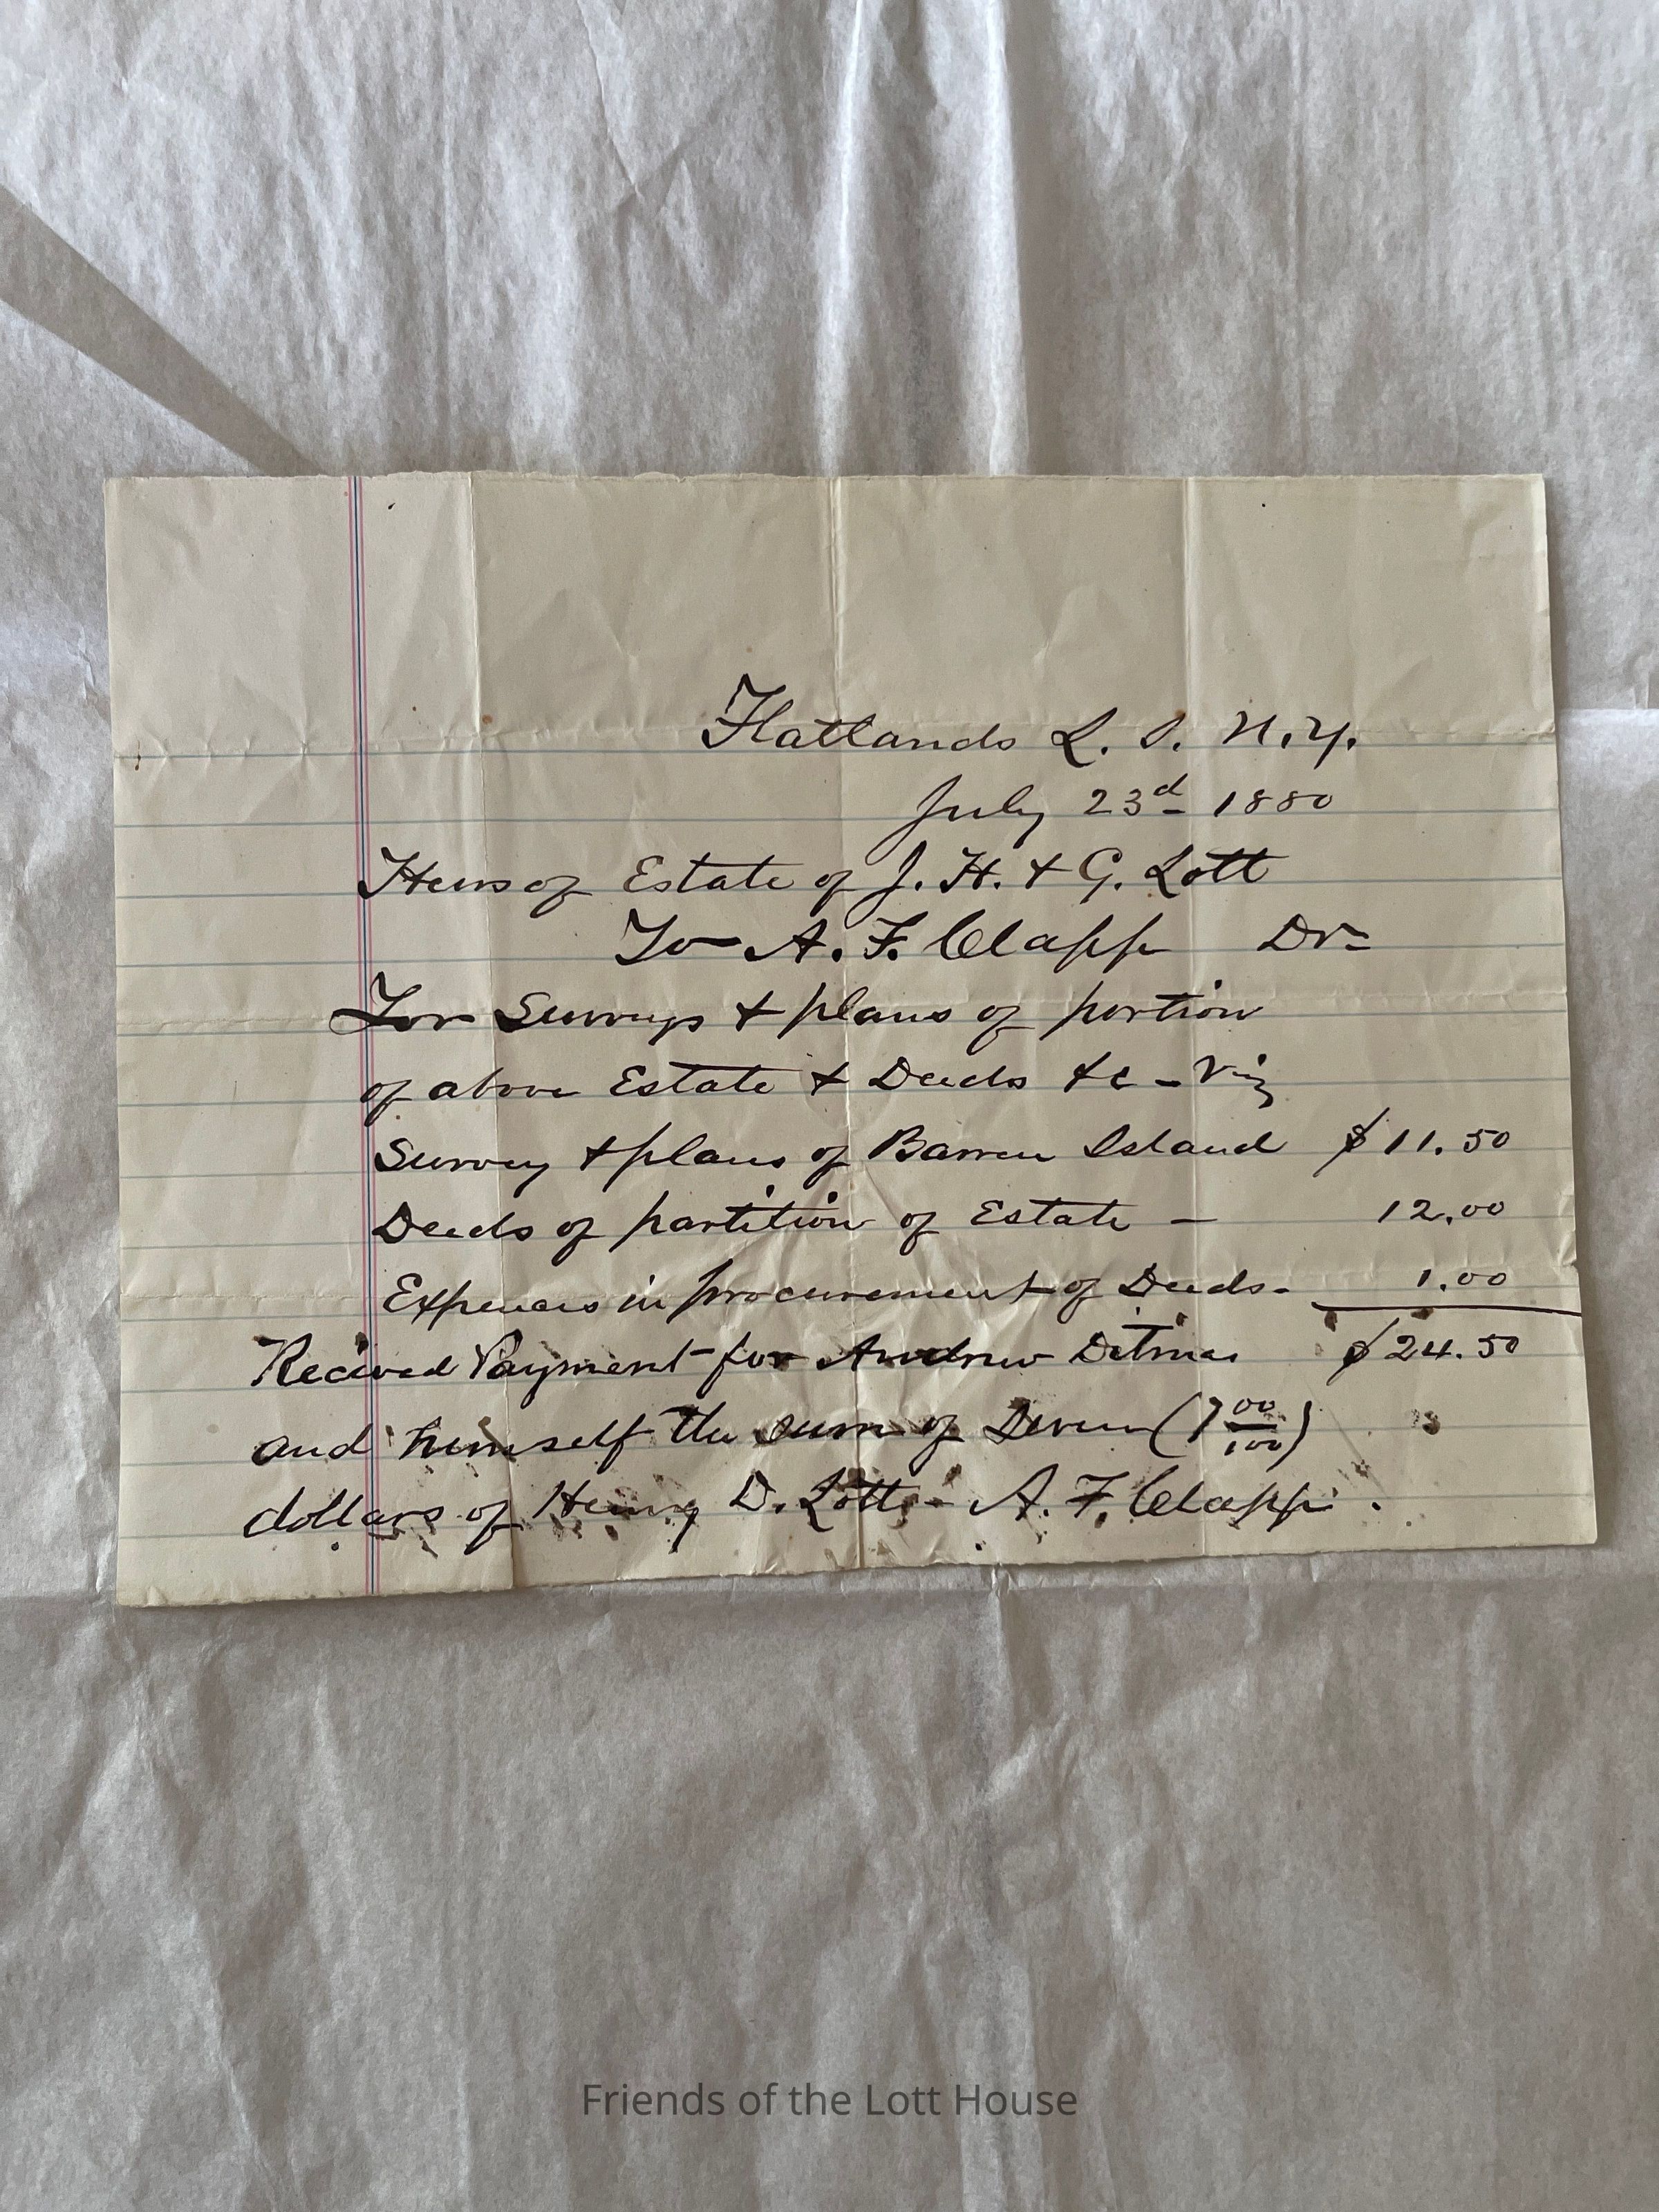 Flatlands L. I. N.Y.
July 23d 1880
Heirs of Estate of J. H. & G. Lott
To A. F. Clapp Dr
For Surveys & plans of portion
of above Estate & Deeds &c - Viz
Survey & plans of Barren Island $11.50
Deeds of partition of Estate - 12.00
Expenses in procurement of Deeds - 1.00
Received Payment for Andrew Ditmas $24.50
and himself the sum of Seven (7 00/100)
dollars of Henry D. Lott - A. F. Clapp.
Friends of the Lott House